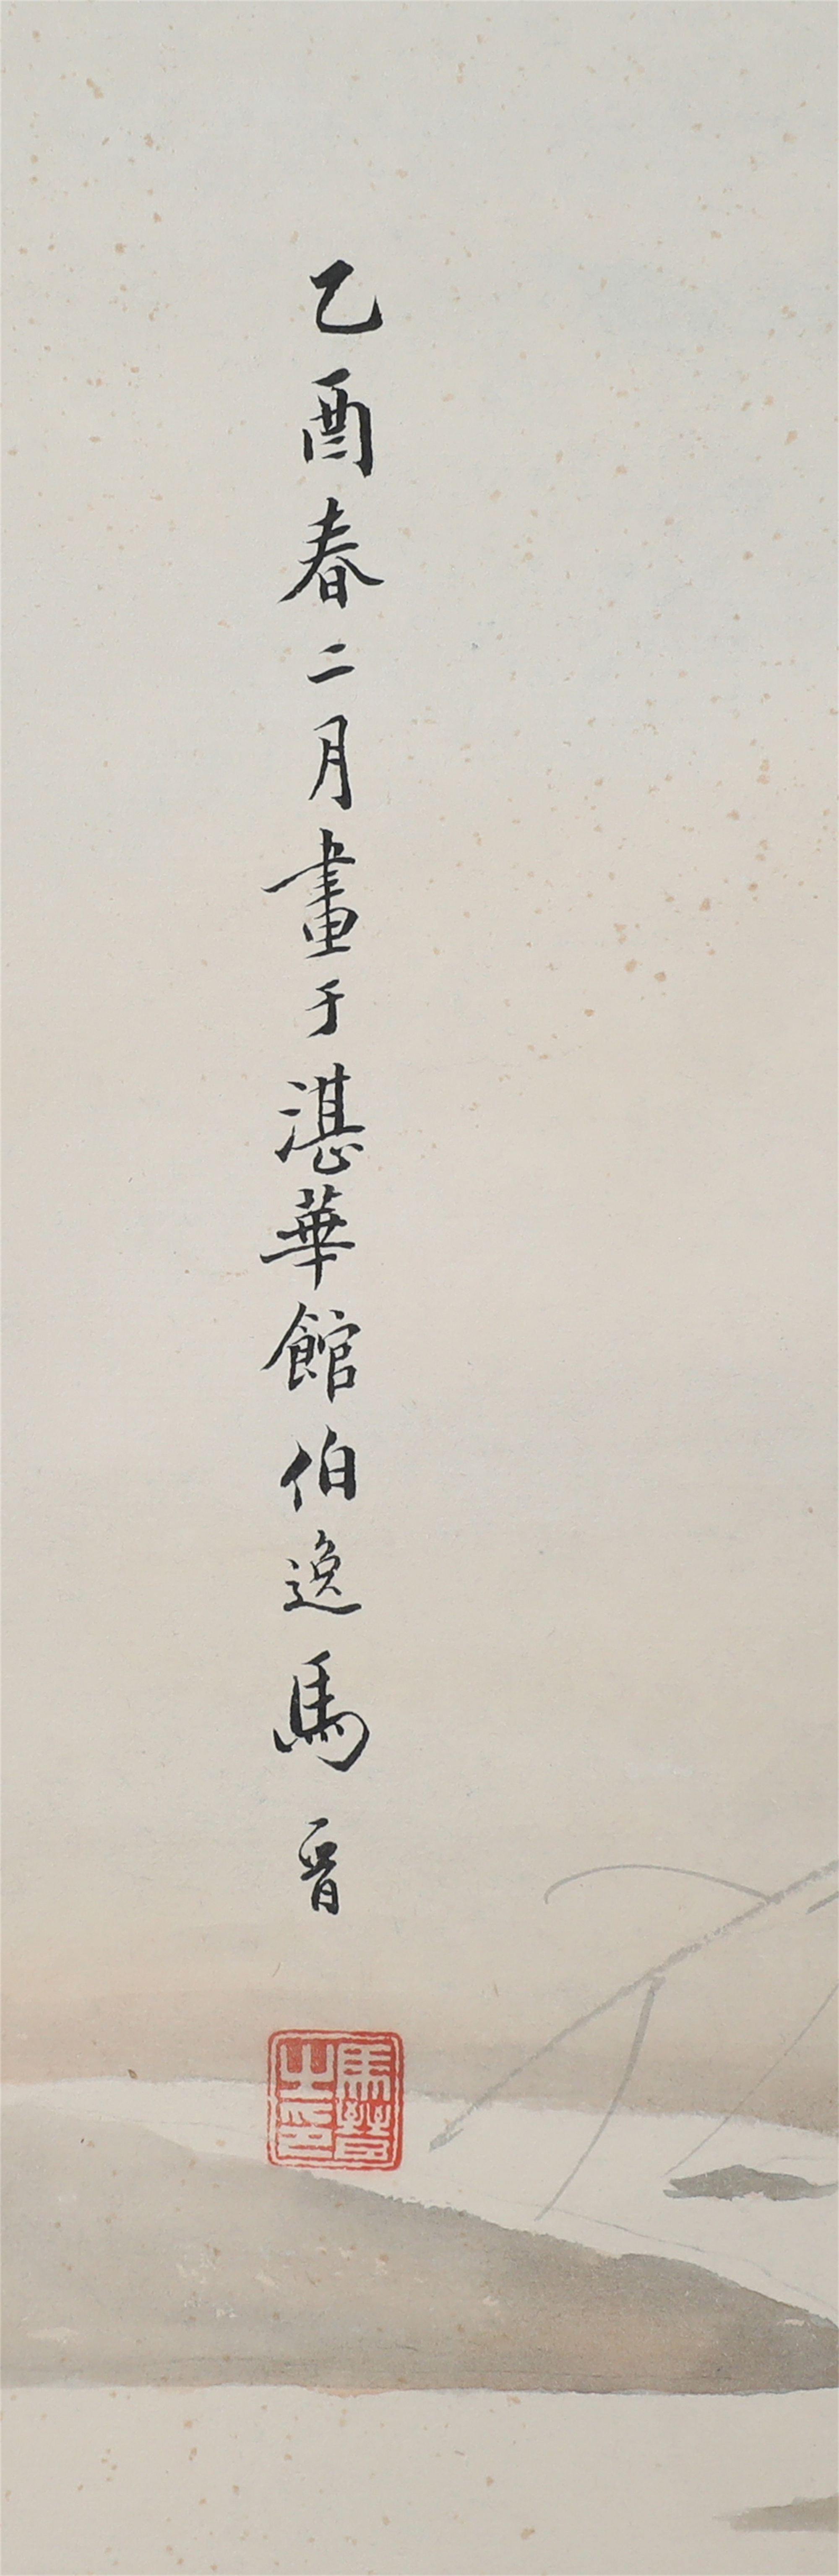 乙酉春二月畫于湛華館伯逸馬晋
馬晉之印